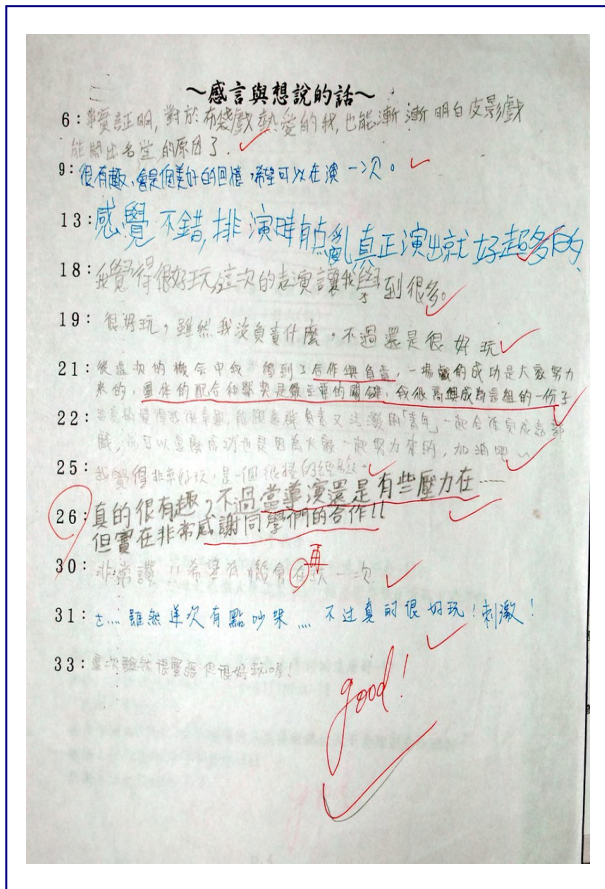 ～感言與想說的話～
6：事實証明，對於布袋戲熱愛的我，也能漸漸明白皮影戲
能闖出名堂的原因了．
9：很有趣，會是個美好的回憶，希望可以在演一次。
13：感覺不錯，排演時有点亂真正演出就好超多的
18：我覺得很好玩，這次的表演讓我學到很多。
19：很好玩，雖然我沒負責什麼，不過還是很好玩
21：從這次的機會中我 得到了合作與負責，一場戲的成功是大家努力
來的，團体的配合和 是最主要的關鍵，我很高興成為這組的一份子
22：
戲， 成功也是因為大家一起努力來的，加油吧
25：我覺得非常好玩，是一個很棒的經驗
26：真的很有趣，不過當導演還是有些壓力在……
但實在非常感謝同學們的合作!!
30：非常讚!!希望有機會在玩一次
再
31：ㄜ... 雖然 次有點吵架 ... 不过真的很好玩!刺激!
33：這次雖然很緊張也很好玩唷!
good!